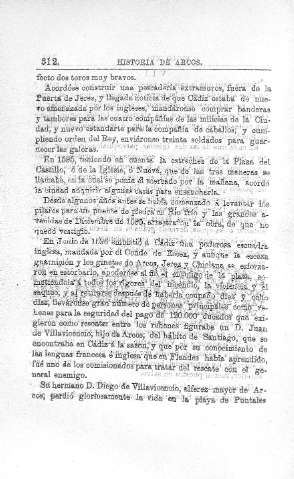 312. HISTORIA DE ARCOS.
fecto dos toros muy bravos.
Acordóse construir una pescadería extramuros, fuera de la
Puerta de Jerez, y llegada noticia de que Cádiz estaba de nue-
vo amenazada por los ingleses, mandáronse comprar banderas
y tambores para las cuatro compañías de las milicias de la Ciu-
dad, y nuevo estandarte para la compañía de caballos, y cum-
pliendo orden del Rey, enviáronse treinta soldados para guar-
necer las galeras.
En 1595, teniendo en cuenta la estrechez de la Plaza del
Castillo, ó de la Iglesia, ó Nueva, que de las tres maneras se
llamaba, en la cual se ponía el mercado por la mañana, acordó
la ciudad adquirir algunas casas para ensancharla.
Desde algunos años antes se había comenzado á levantar los
pilares para un puente de piedra en Río frío y las grandes a-
venidas de Diciembre de 1595, arrasaron la obra, de que no
quedó vestigio.
En Junio de 1596 embistió á Cádiz una poderosa escuadra
inglesa, mandada por el Conde de Essex, y aunque la escasa
guarnición y los ginetes de Arcos, Jerez y Chiclana se esforza-
ron en estorbarlo, apoderóse al fin el enemigo de la plaza, so-
metiéndola á todos los rigores del incendio, la violencia, y el
saqueo, y al retirarse después de haberla ocupado diez y ocho
días, lleváronse gran número de personas principales como re-
henes para la seguridad del pago de 120.000 ducados que exi-
gieron como rescate: entre los rehenes figuraba un D. Juan
de Villavicencio, hijo de Arcos, del hábito de Santiago, que se
encontraba en Cádiz á la sazón, y que por su conocimiento de
las lenguas francesa é inglesa que en Flandes había aprendido,
fué uno de los comisionados para tratar del rescate con el ge-
neral enemigo.
Su hermano D. Diego de Villavicencio, alferez mayor de Ar-
cos, perdió gloriosamente la vida en la playa de Puntales